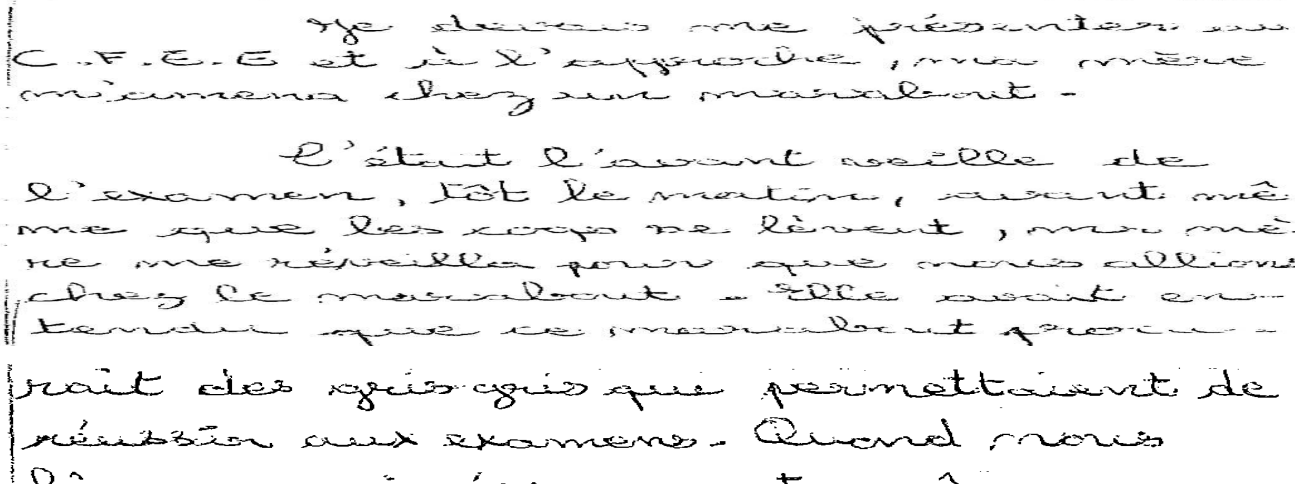 Je devais me présenter au
C.F.E.E et à l'approche, ma mère
m'amena chez un marabout.
C'était l'avant veille de
l'examen, tôt le matin, avant mê
me que les coqs se lèvent, ma mè
re me réveilla pour que nous allions
chez le marabout. Elle avait en-
tendu que ce marabout procu-
rait des gris gris qui permettaient de
réussir aux examens. Quand nous